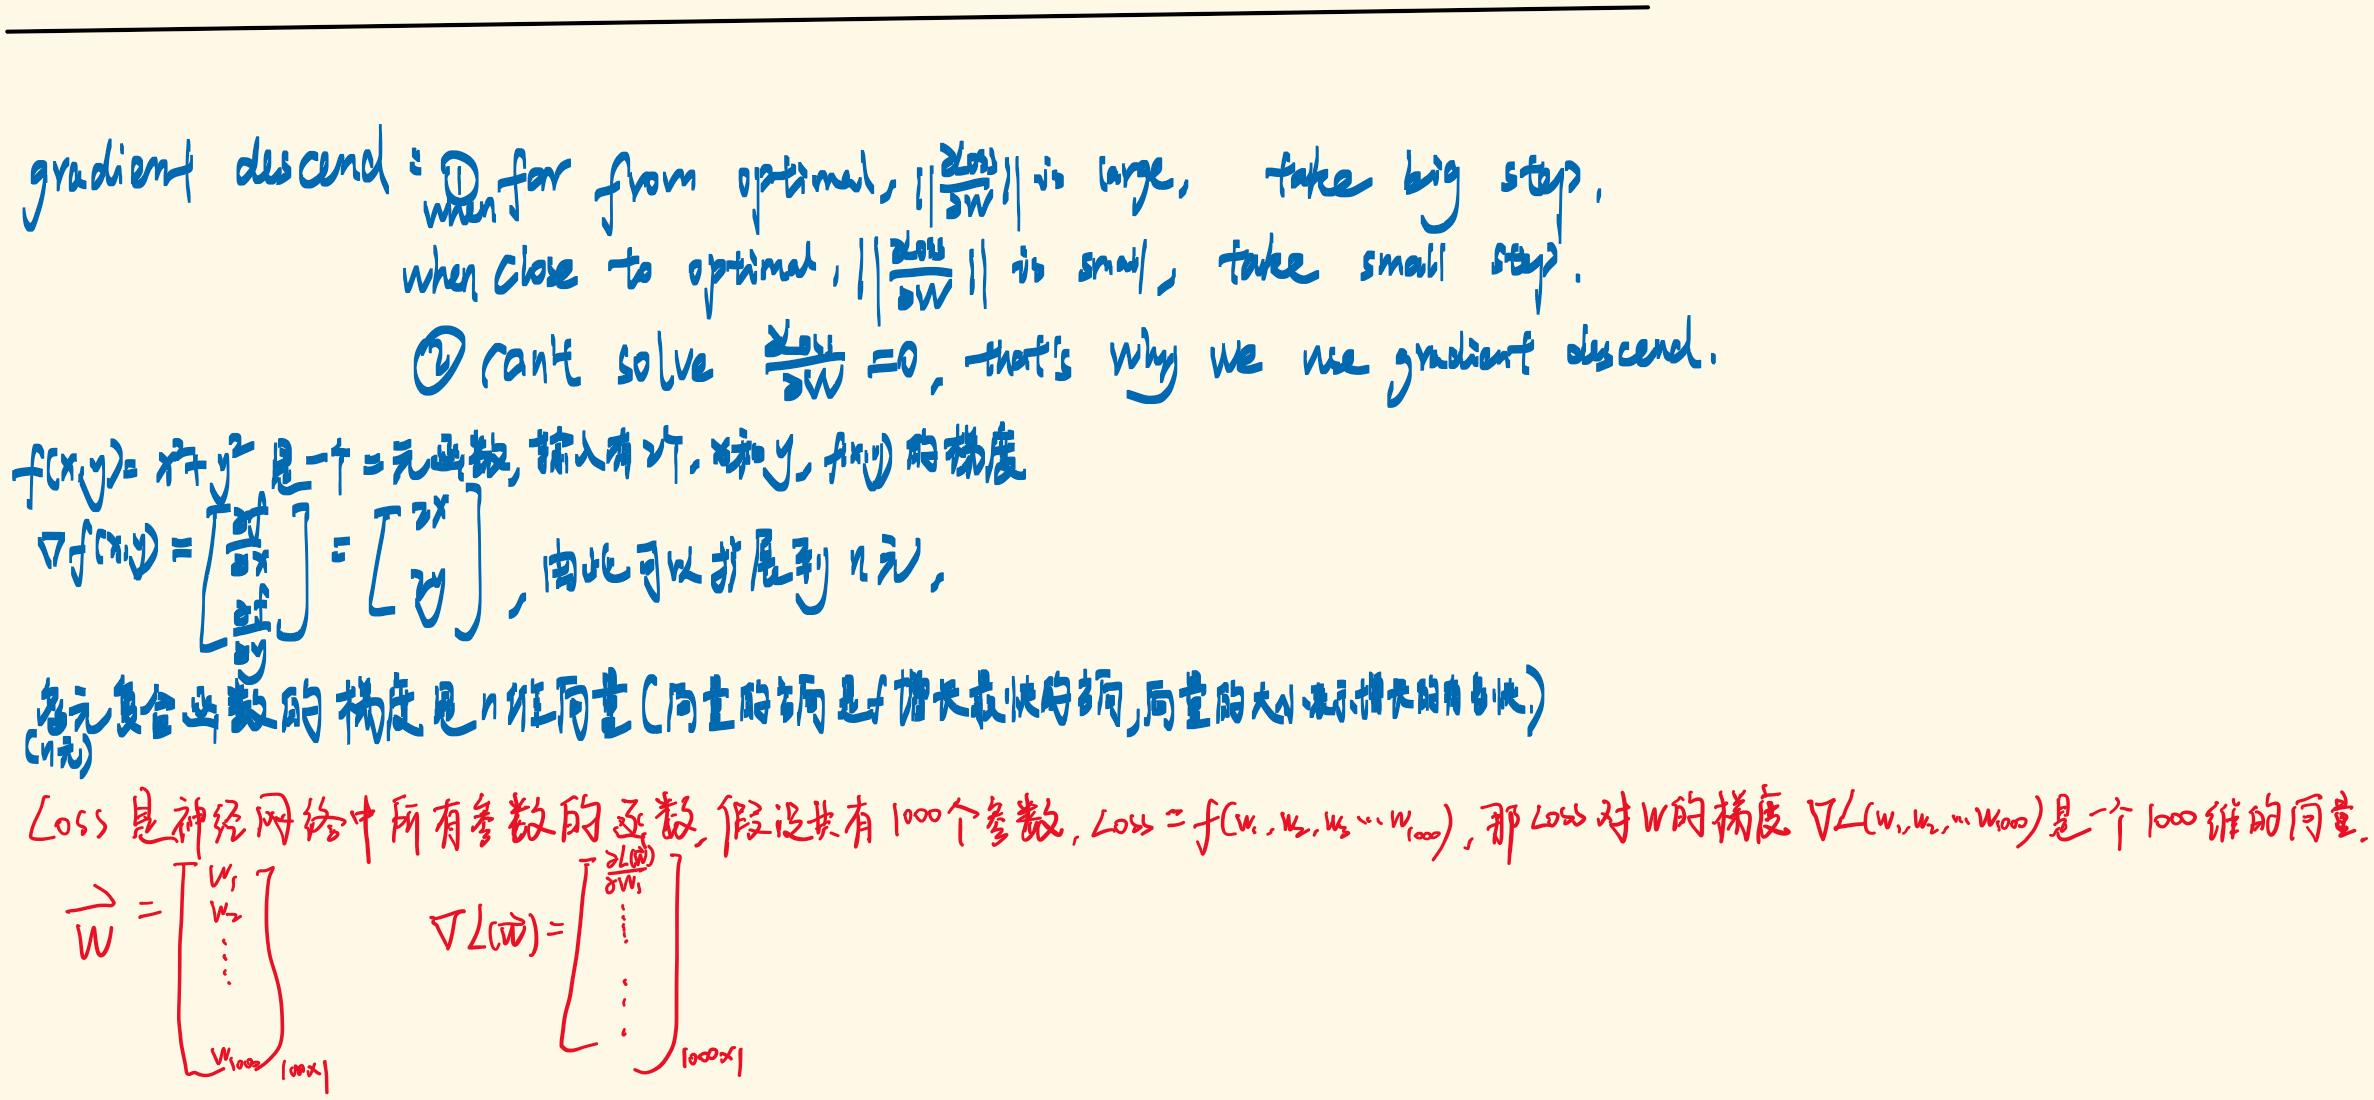 gradient descend: ① when far from optimal, ||∂Loss/∂W|| is large, take big step.
when close to optimal, ||∂Loss/∂W|| is small, take small step.
② can't solve ∂Loss/∂W =0, that's why we use gradient descend.
f(x,y)= x²+y² 是一个二元函数, 输入有2个, x和y, f(x,y) 的梯度
∇f(x,y) = [∂f/∂x ∂f/∂y] = [2x 2y], 由此可以扩展到 n元,
多元复合函数的梯度是n维向量(向量的方向是f增长最快的方向,向量的大小表示增长的有多快.)
(n元)
Loss 是神经网络中所有参数的函数, 假设共有1000个参数, Loss = f(w₁, w₂, w₃ … w₁₀₀₀), 那Loss对W的梯度 ∇L(w₁,w₂,…w₁₀₀₀) 是一个1000维的向量.
W⃗ = [w₁ w₂ ⋮ w₁₀₀₀]1000×1 ∇L(w⃗) = [∂L(w⃗)/∂w₁ ⋮ ⋮]1000×1